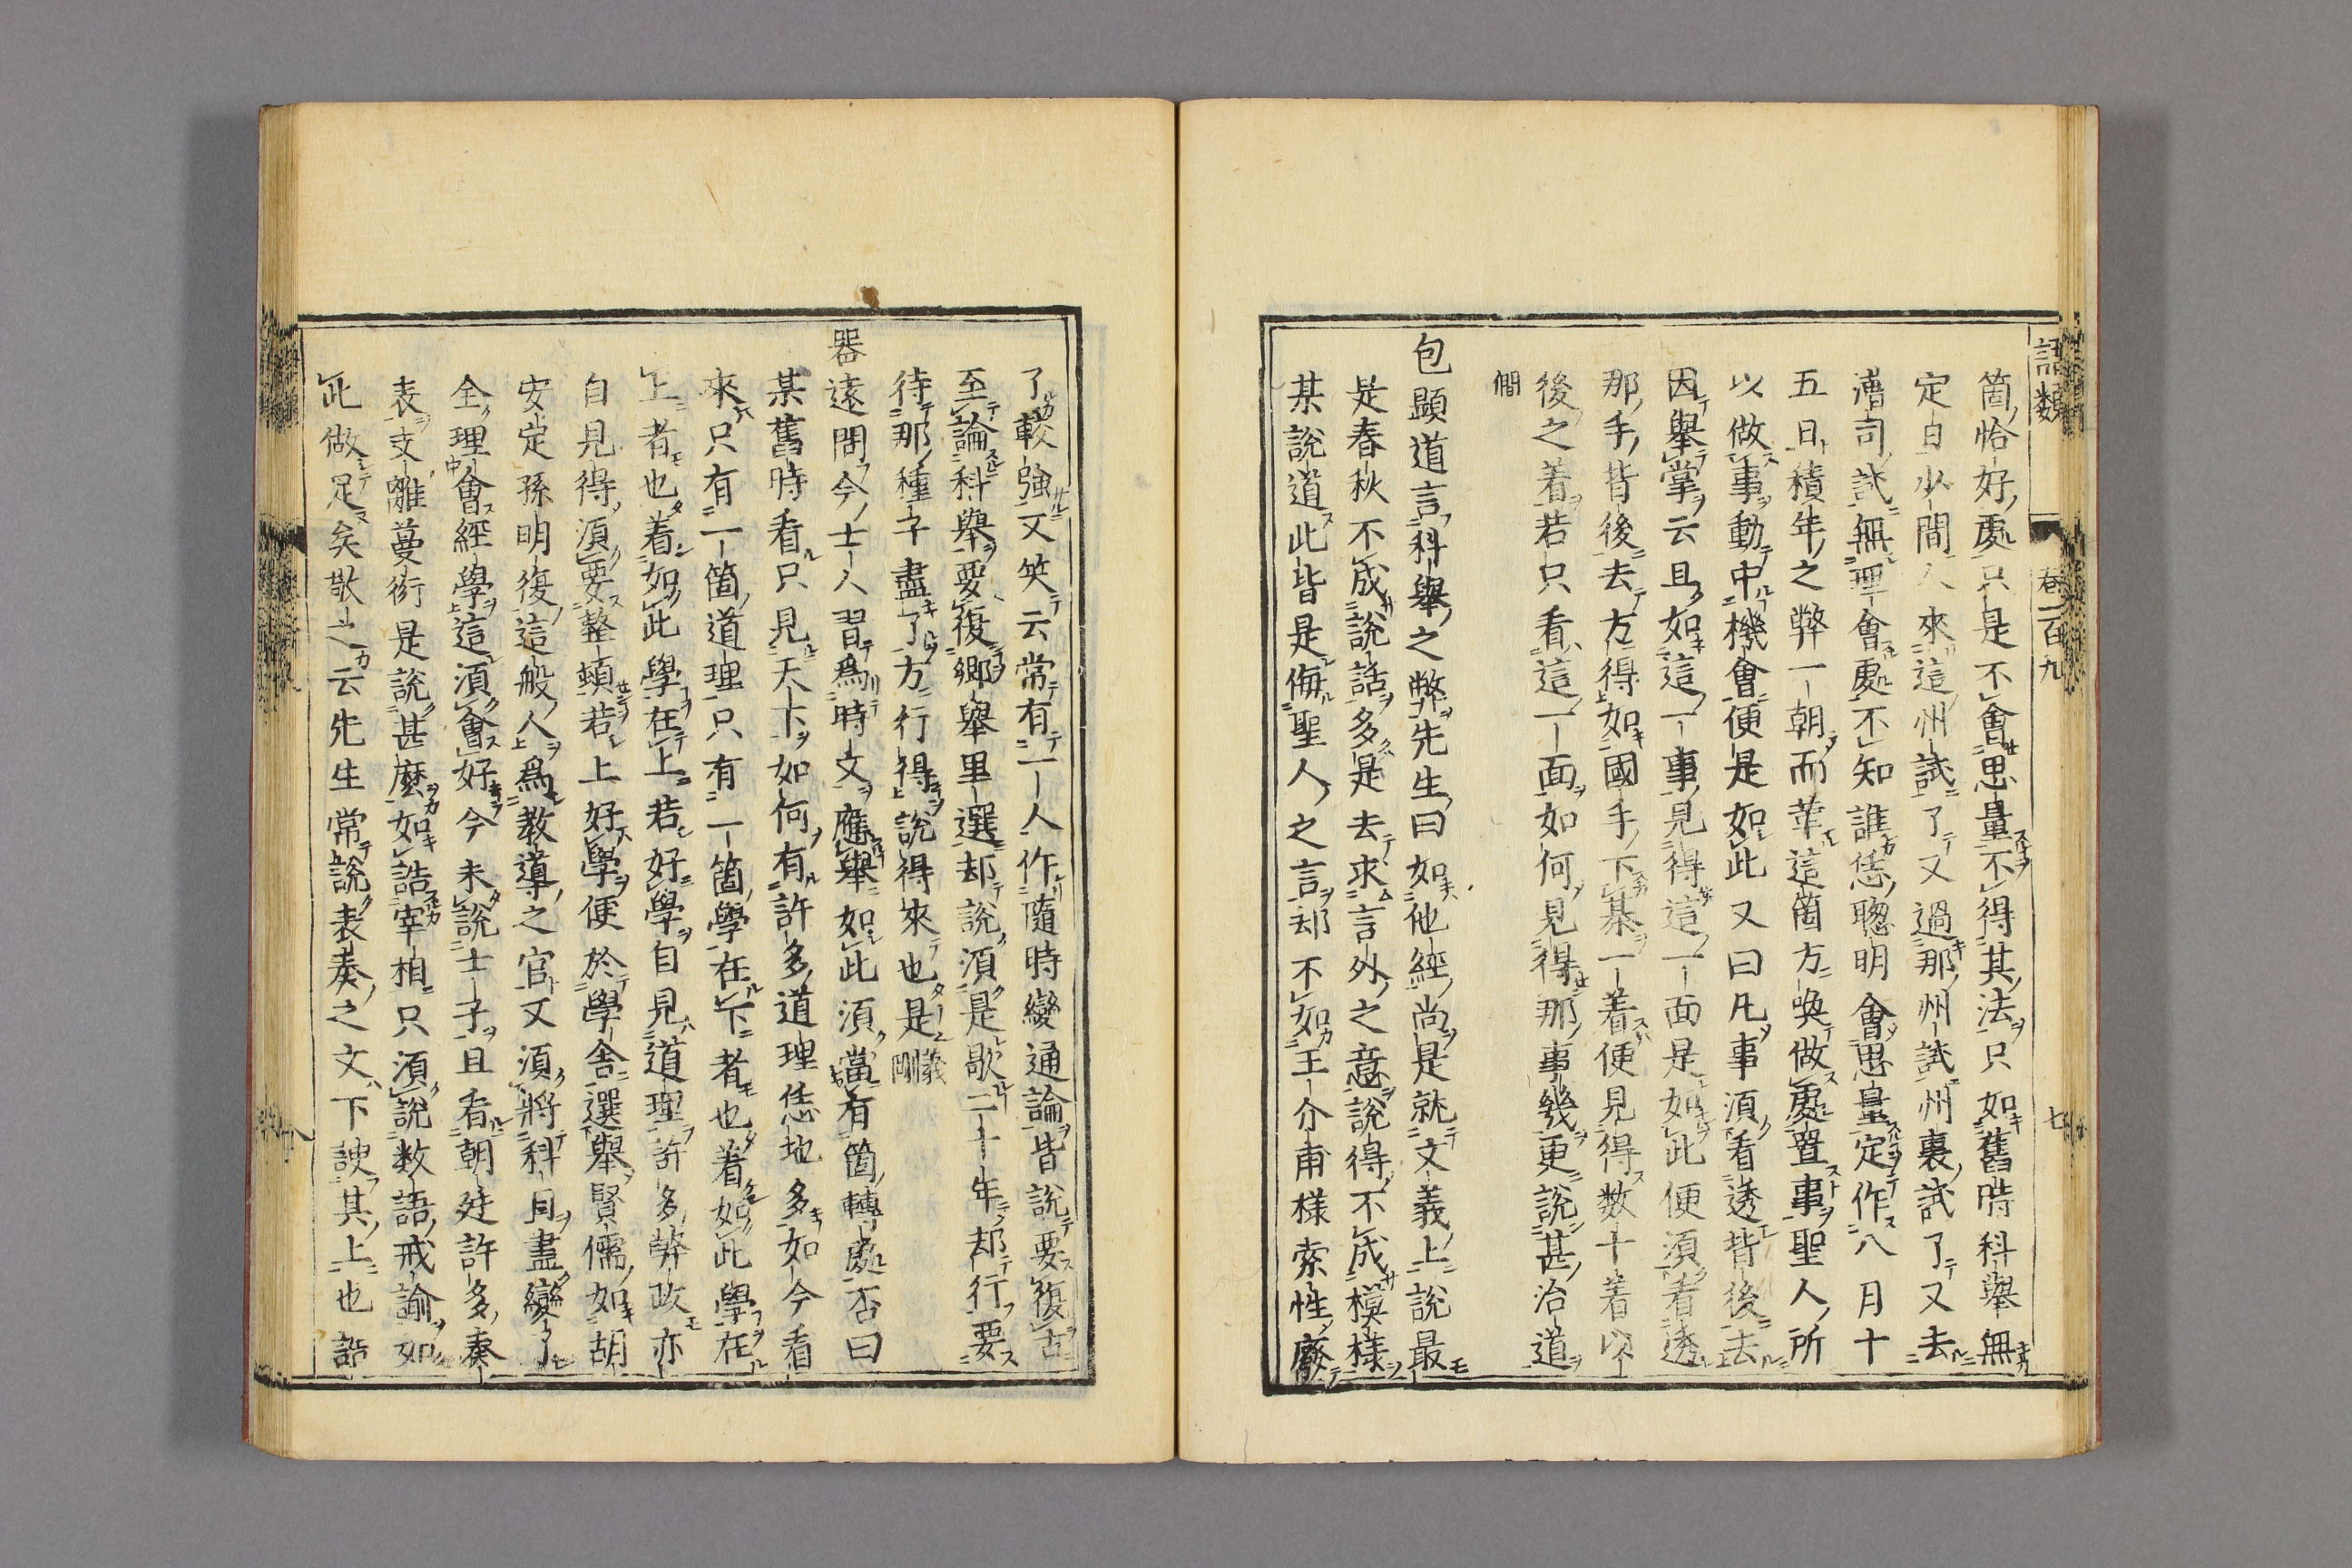 語類 卷一百九 七
箇恰好處只是不會思量不得其法只如舊時科舉無
定日少間人來這州試了又過那州試州裏試了又去
漕司試無理會處不知誰恁聰明會思量定作八月十
五日積年之弊一朝而革這箇方喚做處置事聖人所
以做事動中機會便是如此又曰凡事須看透背後去
因舉掌云且如這一事見得這一面是如此便須看透
那手背後去方得如國手下棊一着便見得数十着以
後之着若只看這一面如何見得那事幾更說甚治道
僩
包顯道言科舉之弊先生曰如他經尚是就文義上說最
是春秋不成說話多是去求言外之意說得不成模樣
某說道此皆是侮聖人之言却不如王介甫樣索性廢
了較強又笑云常有一人作隨時變通論皆說要復古
至論科舉要復鄉舉里選却說須是歇二十年却行要
待那種子盡了方行得說得來也是義剛
器遠問今士人習爲時文應舉如此須當有箇轉處否曰
某舊時看只見天下如何有許多道理恁地多如今看
來只有一箇道理只有一箇學在下者也着如此學在
上者也着如此學在上若好學自見道理許多弊政亦
自見得須要整頓若上好學便於學舎選舉賢儒如胡
安定孫明復這般人爲教導之官又須將科目盡變了
全理會經學這須會好今未說士子且看朝廷許多奏
表支離蔓衍是說甚麼如誥宰相只須說数語戒諭如
此做足矣敬之云先生常說表奏之文下諛其上也誥